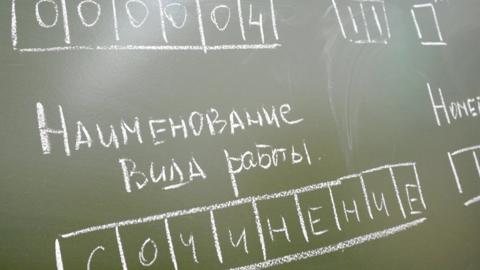 000004
Наименование
Номе
вида работы.
СОЧИНЕНИЕ